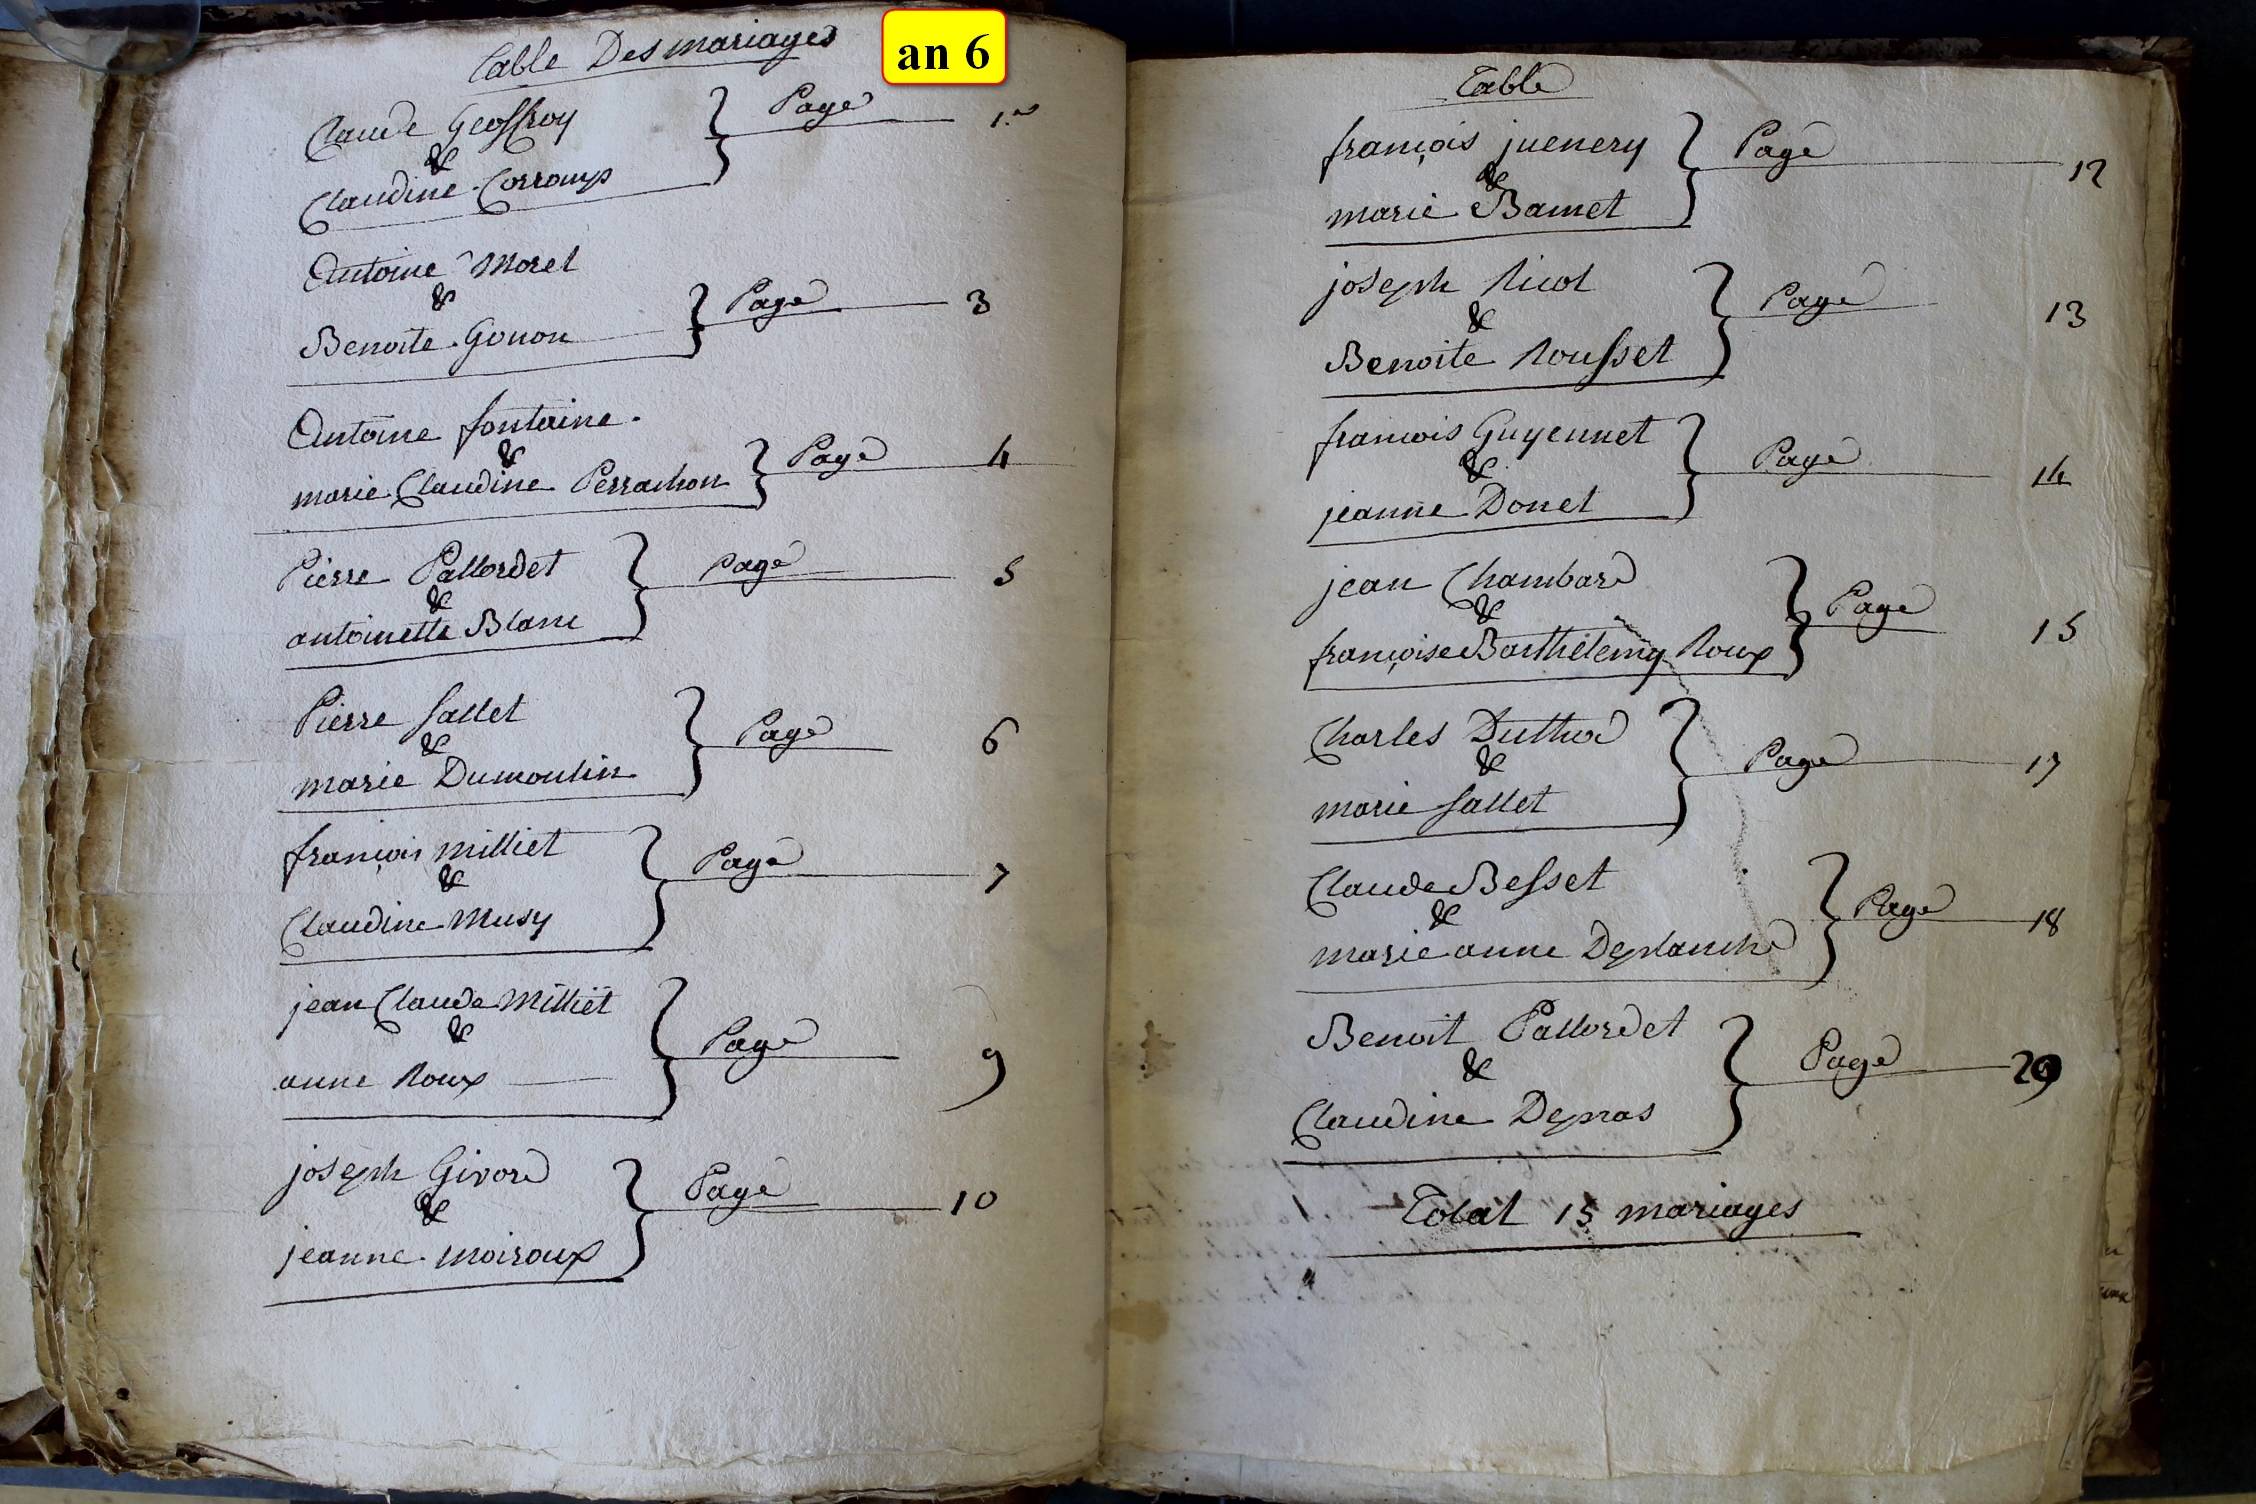 an 6
Table Des mariages
Claude Geoffroy
&
Claudine Corroup
Page 1.er
Antoine Morel
&
Benoite Gonon
Page 3
Antoine fontaine.
&
marie Claudine Perrachon
Page 4
Pierre Pallordet
&
antoinette Blanc
Page 5
Pierre Sallet
&
marie Dumoulin
Page 6
françois milliet
&
Claudine Musy
Page 7
jean Claude Milliet
&
anne Roux
Page 9
joseph Givord
&
jeanne moiroux
Page 10
Table
françois juenery
&
marie Bamet
Page 12
joseph Nicol
&
Benoite Rousset
Page 13
francois Guyennet
&
jeanne Donet
Page 14
jean Chambard
&
françoise Barthélemy Roux
Page 15
Charles
&
marie Sallet
Page 17
Claude Besset
&
marie anne Deplanche
Page 18
Benoit Pallordet
&
Claudine Depras
Page
Total 15 mariages